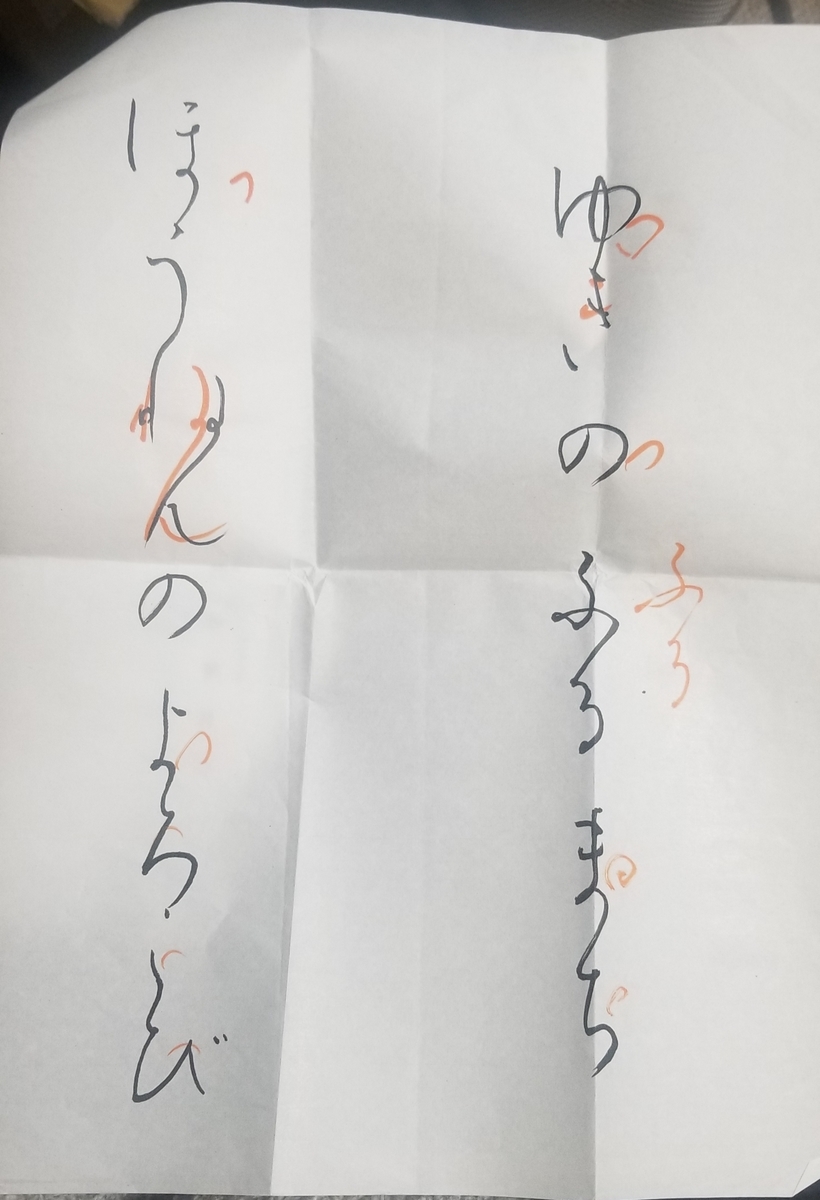 ゆきのふるまち
ほうねんのよろこび